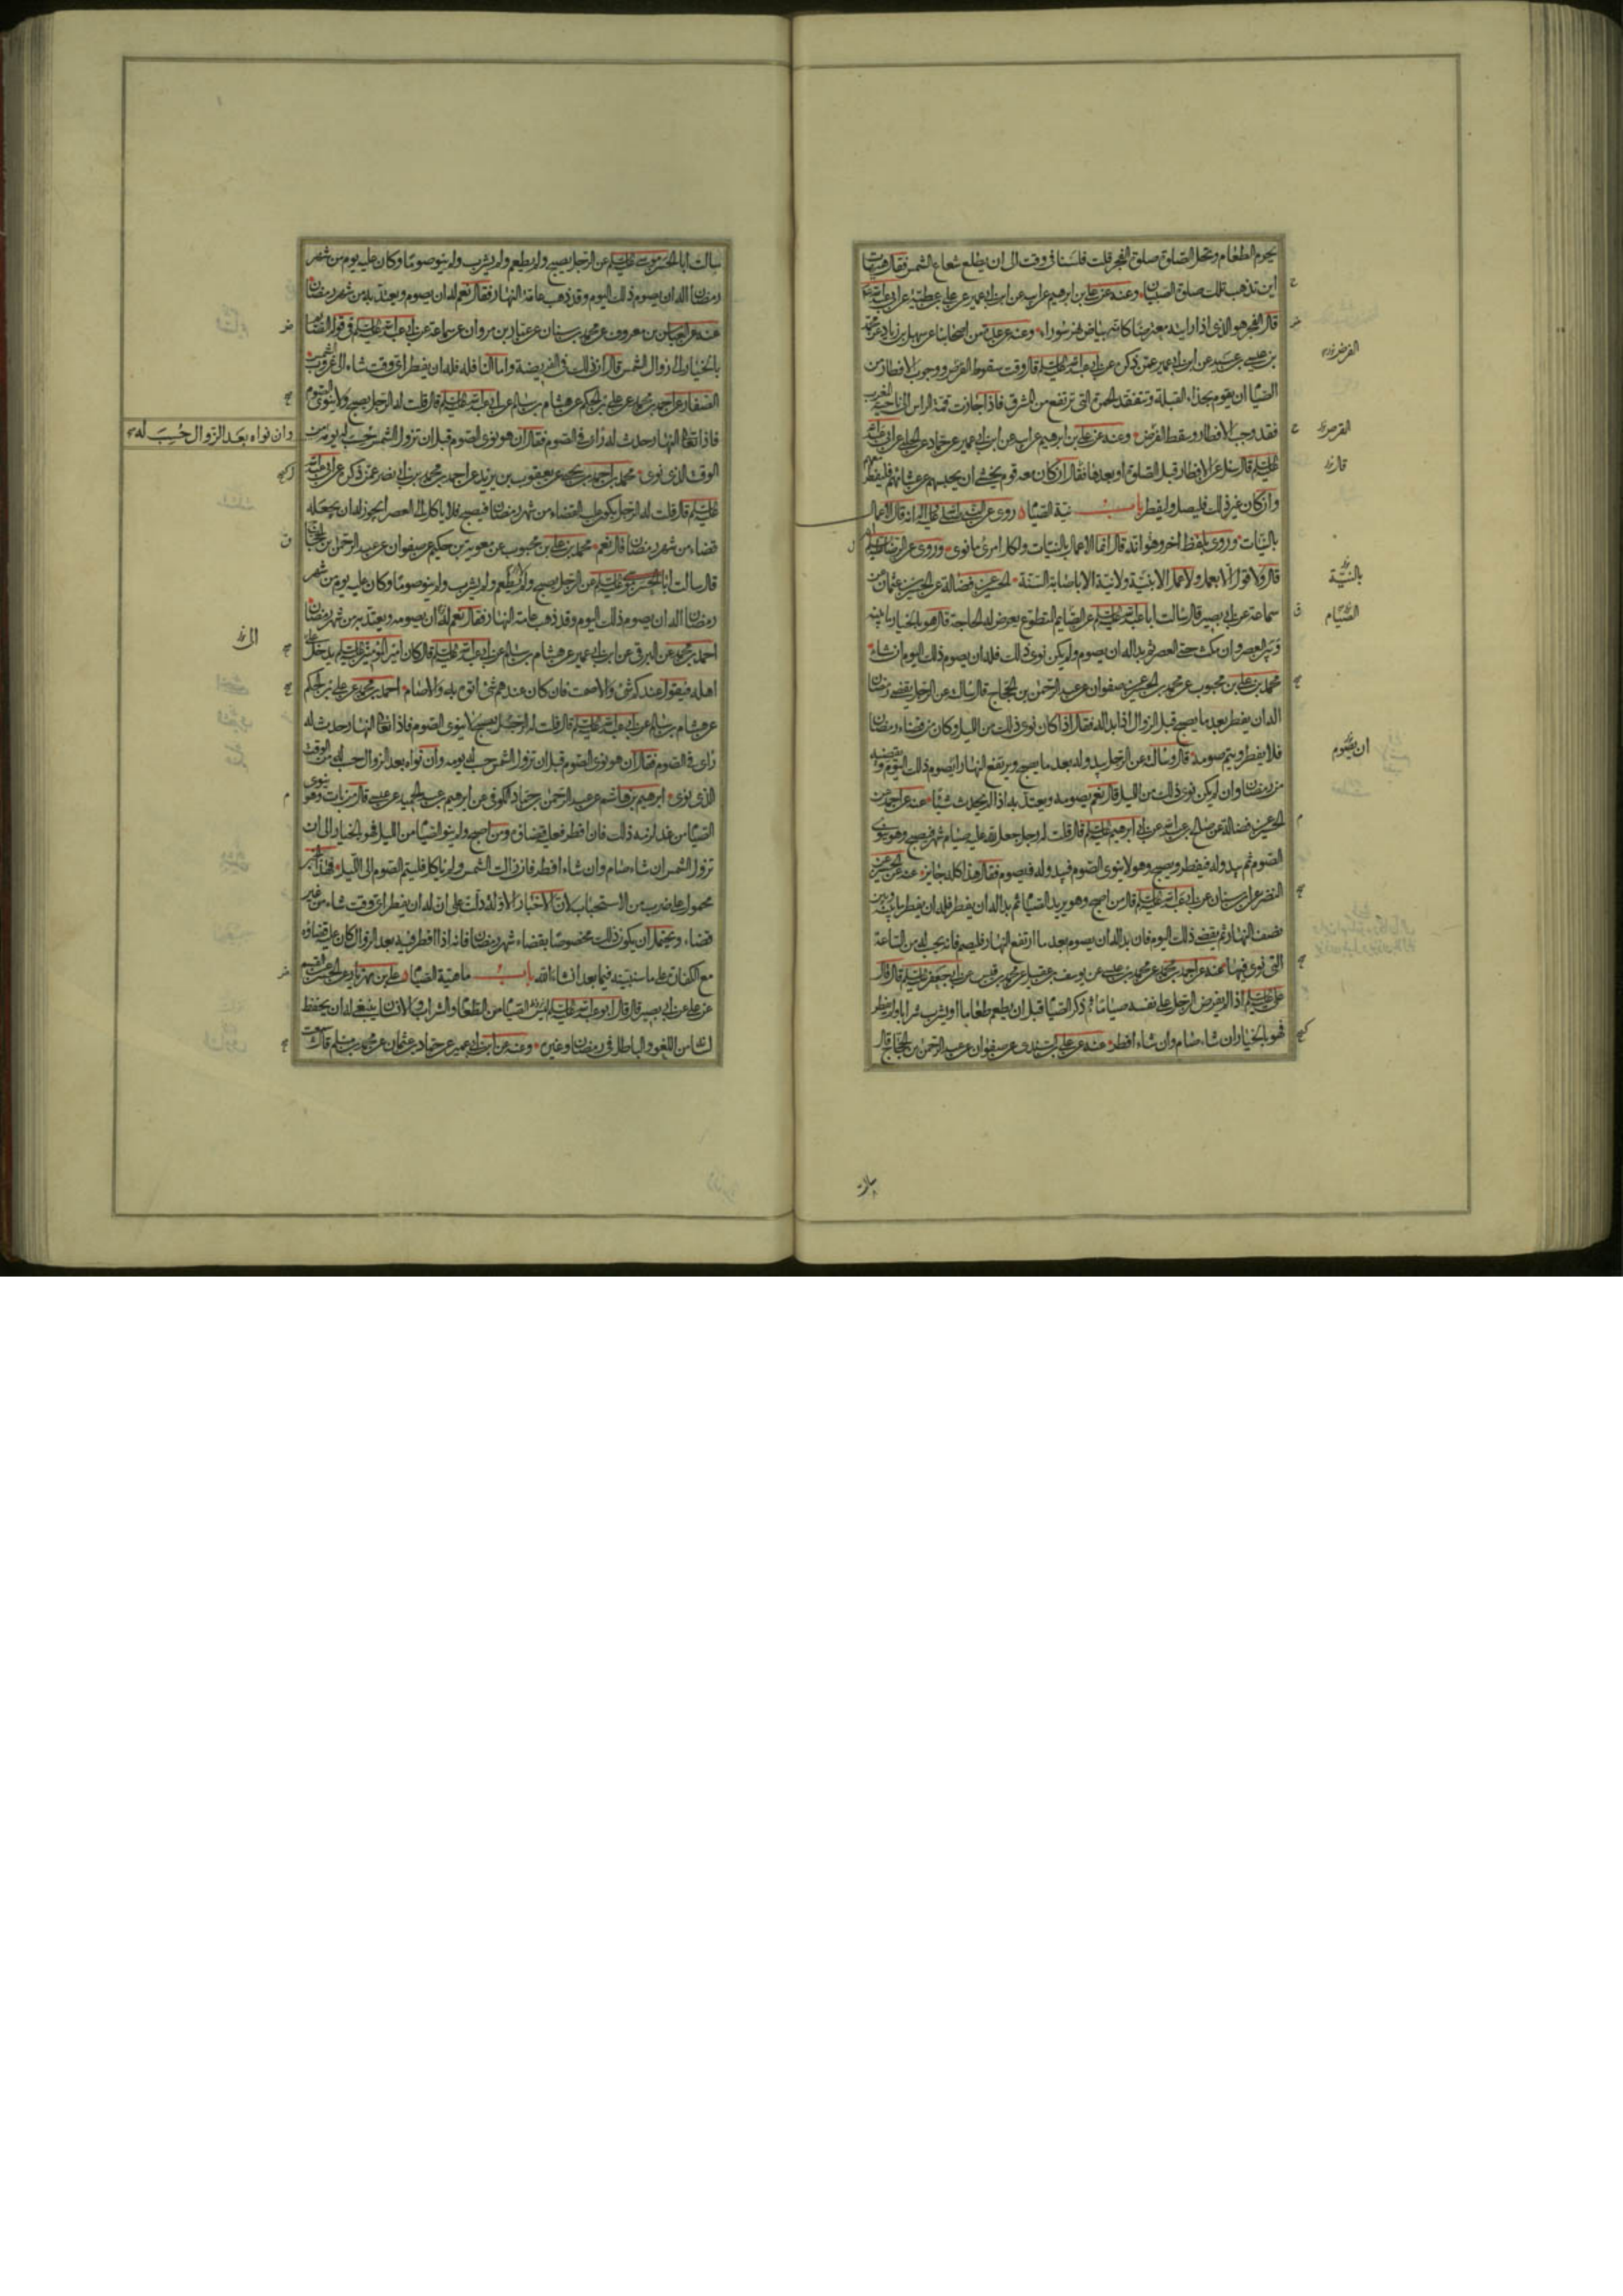 يحرم الطعام وتحل الصلوة صلوة الفجر قلت فلسنا في وقت الى ان يطلع شعاع الشمس فقال هيهات
اين تذهب تلك صلوة الصبيان وعنه عن علي بن ابرهيم عن ابيه عن ابن ابي عمير عن علي بن عطية عن ابي عبد الله
قال الفجر هو الذي اذا رايته معترضا كانه بياض نهر سوراء وعنه عن عدة من اصحابنا عن سهل بن زياد عن محمد
بن عيسى بن عبيد عن ابن ابي عمير عمن ذكره عن ابي عبد الله عليه السلم قال وقت سقوط القرص ووجوب الافطار من
الصيام ان يقوم بحذاء القبلة وتتفقد الحمرة التي ترتفع من المشرق فاذا جازت قمة الراس الى ناحية المغرب
فقد وجب الافطار وسقط القرص وعنه عن علي بن ابرهيم عن ابيه عن ابن ابي عمير عن حماد عن الحلبي عن ابي عبد الله
عليه السلم قال سئل عن الافطار قبل الصلوة او بعدها فقال ان كان معه قوم يخشى ان يحبسهم عن عشائهم فليفطر معهم
وان كان غير ذلك فليصل وليفطر باب نية الصيام روي عن النبي صلى الله عليه واله انه قال الاعمال
بالنيات وروي بلفظ اخر وهو انه قال انما الاعمال بالنيات ولكل امرئ ما نوى وروي عن الرضا عليه السلم
قال ولا قول الا بعمل ولا عمل الا بنية ولا نية الا باصابة السنة الحسين عن فضالة عن الحسين بن عثمان عن
سماعة عن ابي بصير قال سالت ابا عبد الله عليه السلم عن الصايم المتطوع يعرض له الحاجة قال هو بالخيار ما بينه
وبين العصر وان مكث حتى العصر ثم بدا له ان يصوم ولم يكن نوى ذلك فله ان يصوم ذلك اليوم ان شاء
محمد بن علي بن محبوب عن محمد بن الحسين عن صفوان عن عبد الرحمن بن الحجاج قال سالته عن الرجل يقضي رمضان
اله ان يفطر بعد ما يصبح قبل الزوال اذا بدا له فقال اذا كان نوى ذلك من الليل وكان من قضاء رمضان
فلا يفطر ويتم صومه قال وسالته عن الرجل يبدو له بعد ما يصبح ويرتفع النهار ايصوم ذلك اليوم ويقضيه
من رمضان وان لم يكن نوى ذلك من الليل قال نعم يصومه ويعتد به اذا لم يحدث شيئا عنه عن احمد عن
الحسين عن فضالة عن صالح بن عبد الله عن ابي ابرهيم عليه السلم قال قلت له رجل جعل لله عليه صيام شهر فيصبح وهو ينوي
الصوم ثم يبدو له فيفطر ويصبح وهو لا ينوي الصوم فيبدو له فيصوم فقال هذا كله جايز عنه عن الحسين عن
النضر عن ابن سنان عن ابي عبد الله عليه السلم قال من اصبح وهو يريد الصيام ثم بدا له ان يفطر فله ان يفطر ما بينه وبين
نصف النهار ثم يقضي ذلك اليوم فان بدا له ان يصوم بعد ما ارتفع النهار فليصم فانه يحسب له من الساعة
التي نوى فيها عنه عن احمد بن محمد عن محمد بن عيسى عن يوسف بن عقيل عن محمد بن قيس عن ابي جعفر عليه السلم قال قال
علي عليه السلم اذا لم يفرض الرجل على نفسه صياما ثم ذكر الصيام قبل ان يطعم طعاما او يشرب شرابا ولم يفطر
فهو بالخيار ان شاء صام وان شاء افطر عنه عن علي بن السندي عن صفوان عن عبد الرحمن بن الحجاج قال
القرص
قال
بالنية
الصيام
ان يصوم
سالت
سالت ابا الحسن موسى عليه السلم عن الرجل يصبح ولم يطعم ولم يشرب ولم ينو صوما وكان عليه يوم من شهر
رمضان اله ان يصوم ذلك اليوم وقد ذهب عامة النهار فقال نعم له ان يصوم ويعتد به من شهر رمضان
عنه عن العباس بن معروف عن محمد بن سنان عن عمار بن مروان عن سماعة عن ابي عبد الله عليه السلم في قوله الصايم
بالخيار الى زوال الشمس قال ان ذلك في الفريضة واما النافلة فله ان يفطر اي وقت شاء الى غروب الشمس
الصفار عن احمد بن محمد عن علي بن الحكم عن هشام بن سالم عن ابي عبد الله عليه السلم قال قلت له الرجل يصبح ولا ينوي الصوم
فاذا تعالى النهار حدث له راى في الصوم فقال ان هو نوى الصوم قبل ان تزول الشمس حسب له يومه من
الوقت الذي نوى محمد بن احمد بن يحيى عن يعقوب بن يزيد عن احمد بن محمد بن ابي نصر عمن ذكره عن ابي عبد الله
عليه السلم قال قلت له الرجل يكون عليه القضاء من شهر رمضان فيصبح فلا ياكل الى العصر ايجوز له ان يجعله
قضاء من شهر رمضان قال نعم محمد بن علي بن محبوب عن معوية بن حكيم عن صفوان عن عبد الرحمن بن الحجاج
قال سالت ابا الحسن موسى عليه السلم عن الرجل يصبح ولم يطعم ولم يشرب ولم ينو صوما وكان عليه يوم من شهر
رمضان اله ان يصوم ذلك اليوم وقد ذهب عامة النهار فقال نعم له ان يصومه ويعتد به من شهر رمضان
احمد بن محمد عن البرقي عن ابن ابي عمير عن هشام بن سالم عن ابي عبد الله عليه السلم قال كان امير المؤمنين عليه السلم يدخل على
اهله فيقول عندكم شئ والا صمت فان كان عندهم شئ اتوه به والا صام احمد بن محمد عن علي بن الحكم
عن هشام بن سالم عن ابي عبد الله عليه السلم قال قلت له الرجل يصبح لا ينوي الصوم فاذا تعالى النهار حدث له
راى في الصوم فقال ان هو نوى الصوم قبل ان تزول الشمس حسب له يومه وان نواه بعد الزوال حسب له من الوقت
الذي نوى ابرهيم بن هاشم عن عبد الرحمن بن حماد الكوفي عن ابرهيم بن عبد الحميد عن عيسى قال من بات وهو ينوي
الصيام من غد لزمه ذلك فان افطر فعليه قضاؤه ومن اصبح ولم ينو الصيام من الليل فهو بالخيار الى ان
تزول الشمس ان شاء صام وان شاء افطر فان زالت الشمس ولم ياكل فليتم الصوم الى الليل فهذا الخبر
محمول على ضرب من الاستحباب لان الاخبار الاولة دلت على ان له ان يفطر اي وقت شاء من غير
قضاء ويحتمل ان يكون ذلك مخصوصا بقضاء شهر رمضان فانه اذا افطر فيه بعد الزوال كان عليه قضاؤه
مع الكفارة على ما سنبينه فيما بعد ان شاء الله باب ماهية الصيام علي بن مهزيار عن الحسن عن القسم
عن علي عن ابي بصير قال قال ابو عبد الله عليه السلم ليس الصيام من الطعام والشراب والانسان ينبغي له ان يحفظ
لسانه من اللغو والباطل في رمضان وغيره وعنه عن ابن ابي عمير عن حماد بن عثمان عن محمد بن مسلم قال سمعت
وان نواه بعد الزوال حسب له